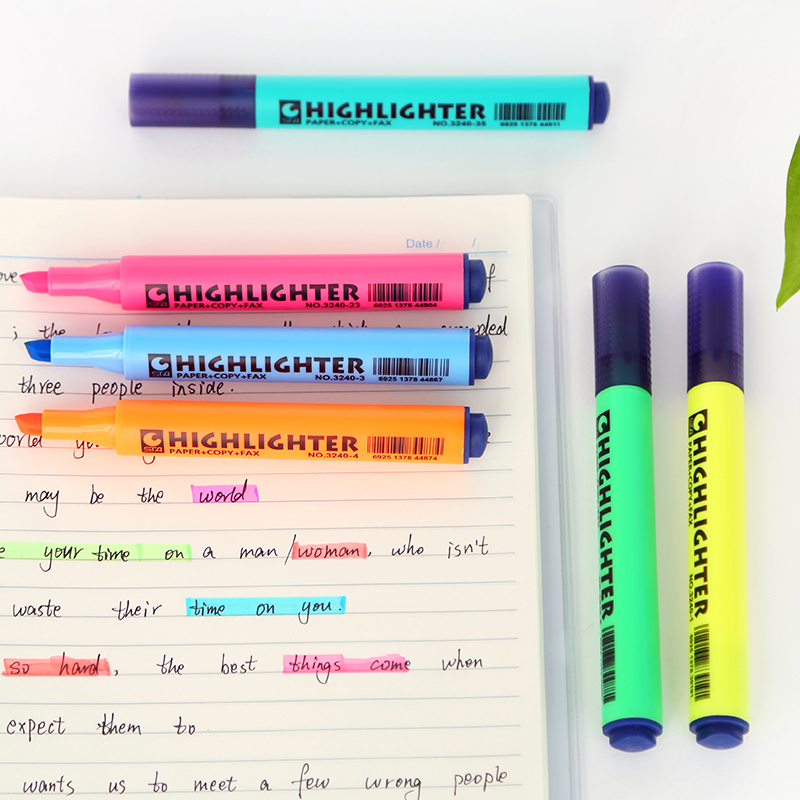 HIGHLIGHTER
PAPER+COPY+FAX NO.3240-35 6925 1378 44911
Date / /
HIGHLIGHTER
PAPER+COPY+FAX NO.3240-23 6925 1378 44904
; the
HIGHLIGHTER
PAPER+COPY+FAX NO.3240-3 6925 1378 44867
three people inside.
HIGHLIGHTER
STA PAPER+COPY+FAX NO.3240-4 6925 1378 44874
may be the world
your time on a man/woman, who isn't
waste their time on you.
so hard, the best things come when
expect them to
wants us to meet a few wrong people
HIGHLIGHTER
HIGHLIGHTER
PAPER+COPY+FAX NO.3240-1